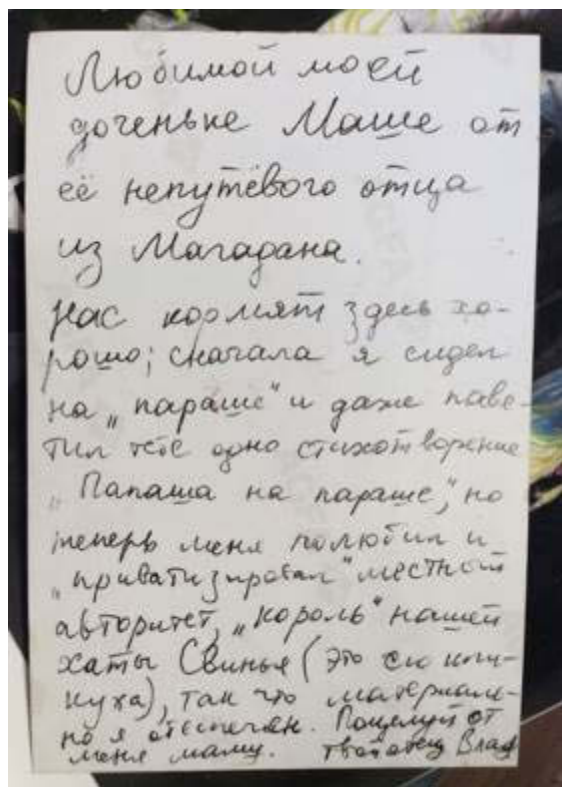 Любимой моей
доченьке Маше от
её непутёвого отца
из Магадана.
Нас кормят здесь хо-
рошо; сначала я сидел
на „параше" и даже
тил тебе одно стихотворение
„Папаша на параше", но
теперь меня полюбил и
„приватизировал" местный
авторитет, „король" нашей
хаты Свинья (это его кли-
куха), так что материаль-
но я обеспечен. Поцелуй от
меня маму. Твой отец Влад